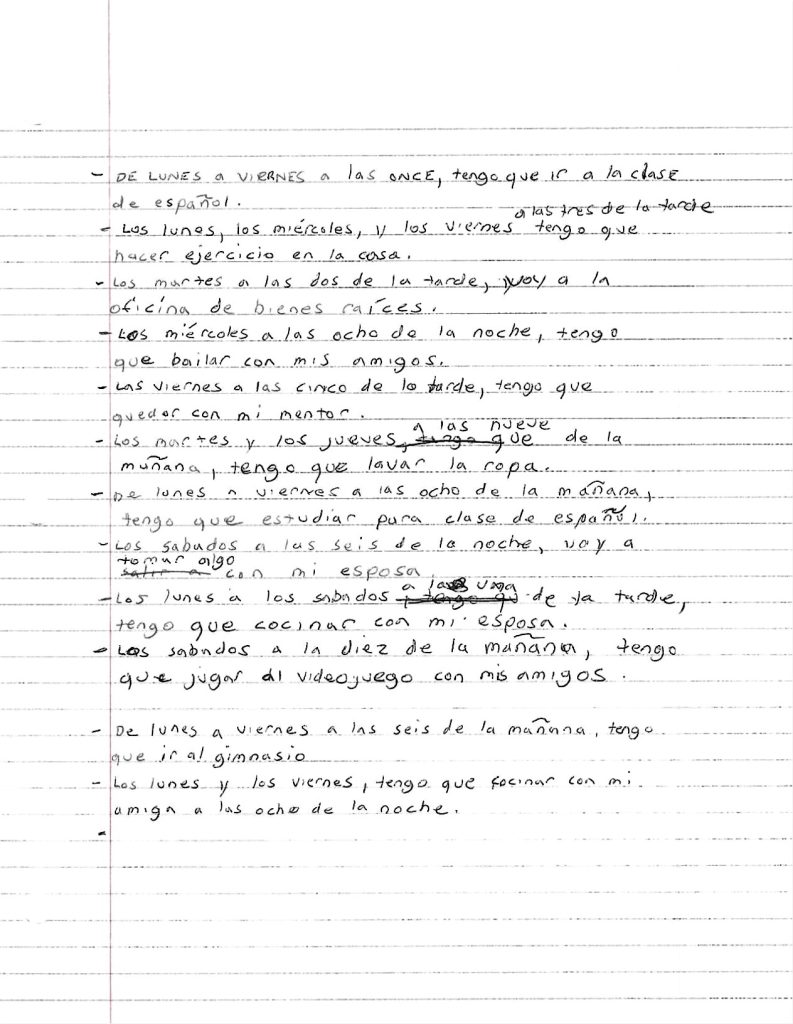 - DE LUNES a VIERNES a las ONCE, tengo que ir a la clase
de español.
a las tres de la tarde
- Los lunes, los miércoles, y los viernes tengo que
hacer ejercicio en la casa.
- Los martes a las dos de la tarde, voy a la
oficina de bienes raíces.
- Los miércoles a las ocho de la noche, tengo
que bailar con mis amigos.
- Los viernes a las cinco de la tarde, tengo que
quedar con mi mentor.
a las nueve
- Los martes y los jueves, tengo que de la
mañana, tengo que lavar la ropa.
- De lunes a viernes a las ocho de la mañana,
tengo que estudiar para clase de español.
- Los sabados a las seis de la noche, voy a
tomar algo
salir a con mi esposa
a la una
- Los lunes a los sabados, tengo qu de la tarde,
tengo que cocinar con mi esposa.
- Los sabados a la diez de la mañana, tengo
que jugar al videojuego con mis amigos.
- De lunes a viernes a las seis de la mañana, tengo
que ir al gimnasio
- Los lunes y los viernes, tengo que cocinar con mi
amiga a las ocho de la noche.
-